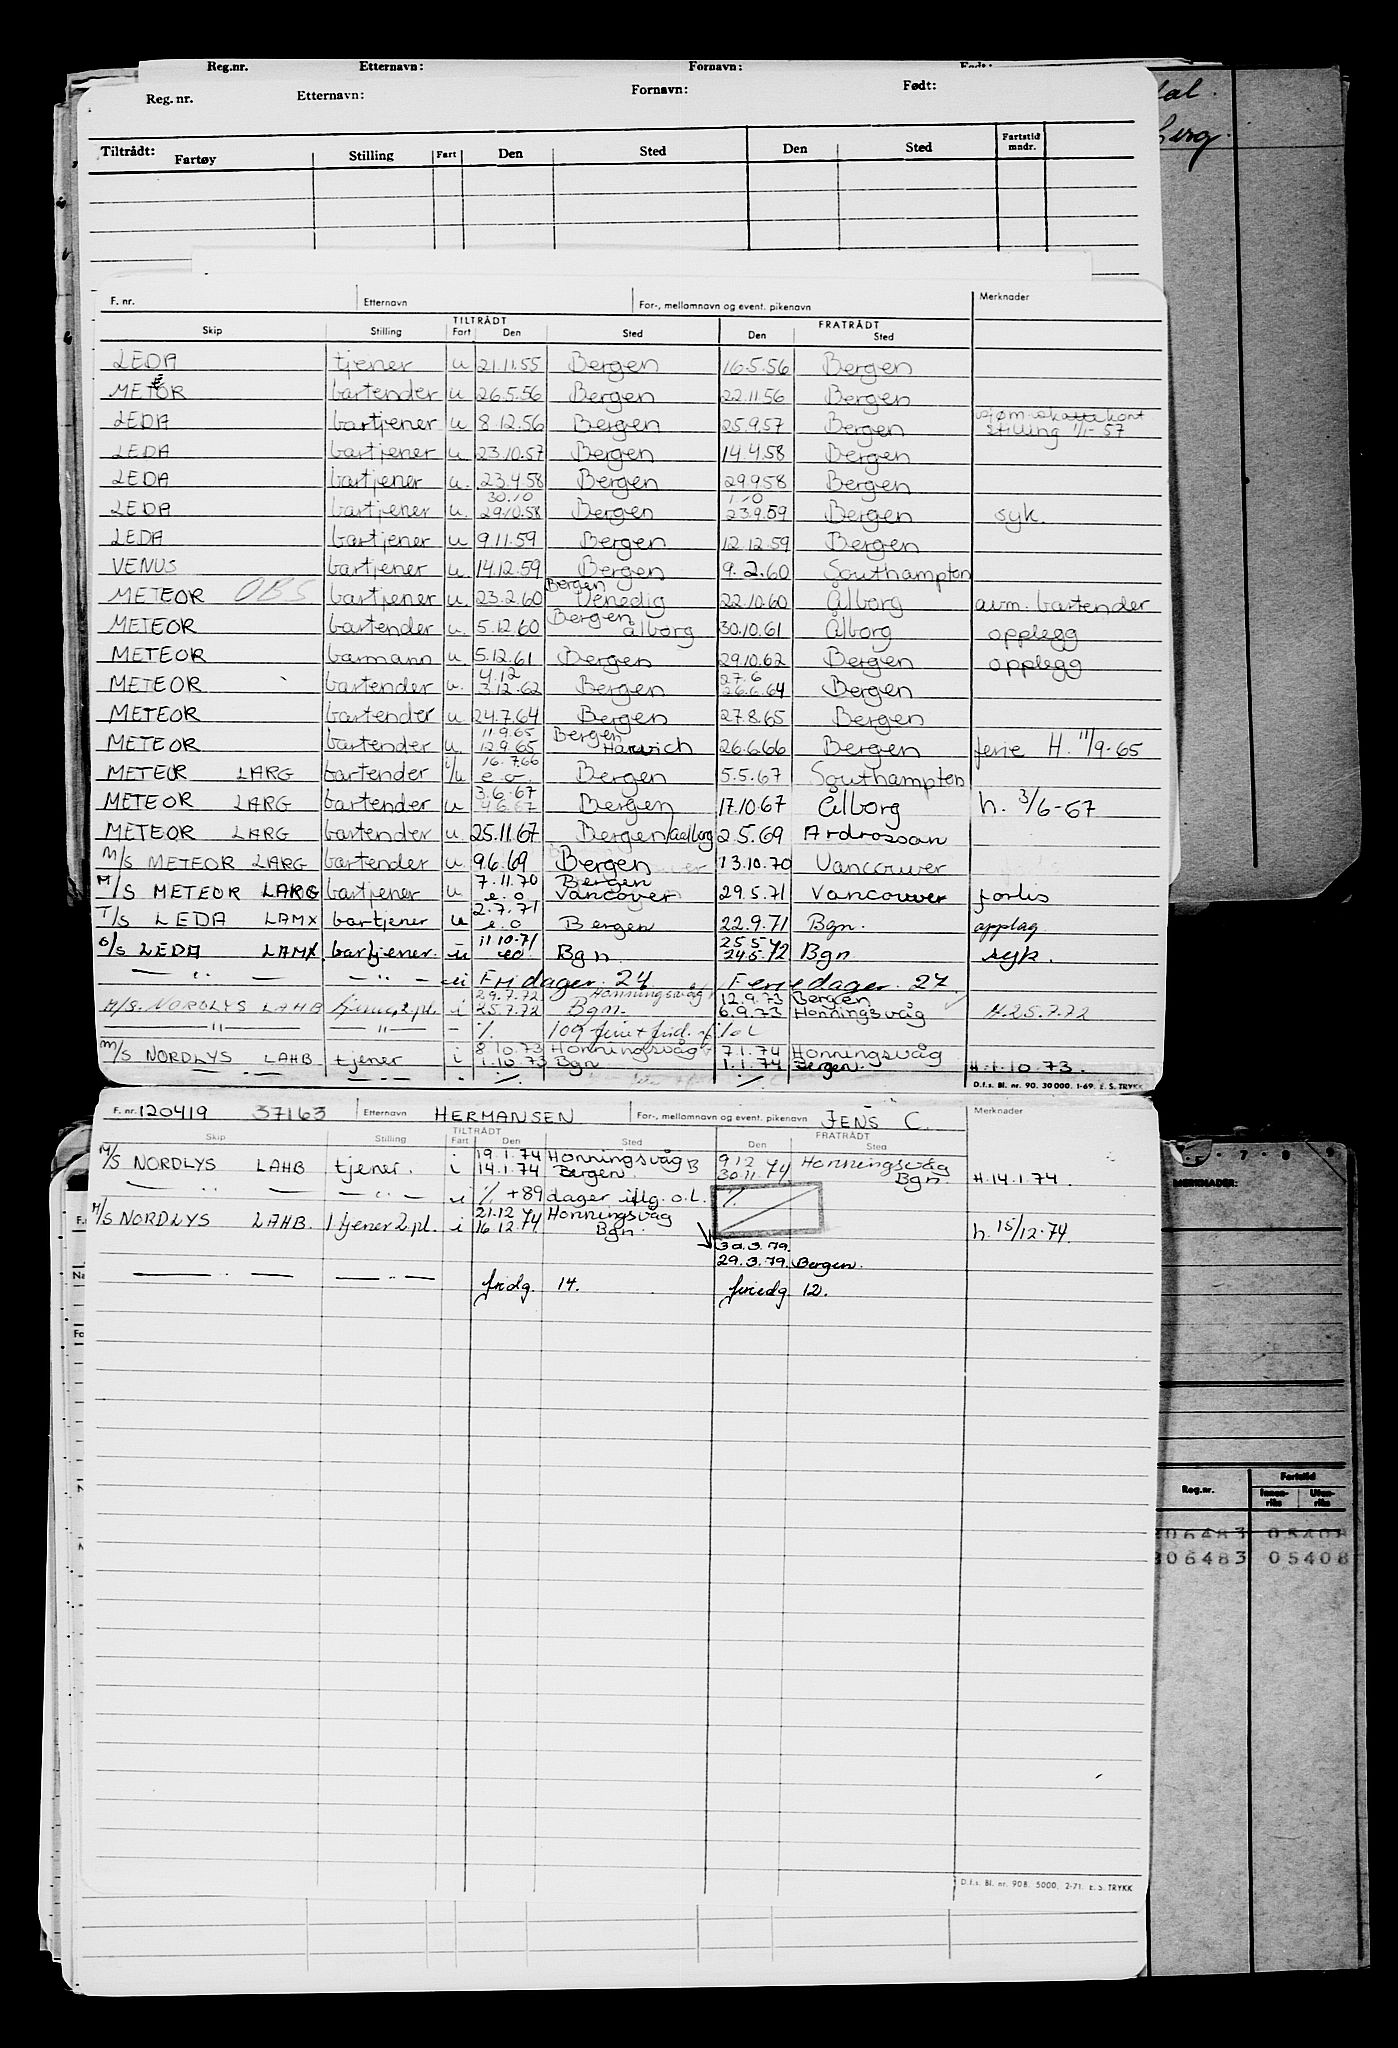 Reg.nr. Etternavn: Fornavn: Født:
Reg. nr. Etternavn: Fornavn: Født:
Tiltrådt: Fartøy Stilling Fart Den Sted Den Sted Fartstid mndr.
F. nr. Etternavn For-, mellomnavn og event. pikenavn Merknader
TILTRÅDT FRATRÅDT
Skip Stilling Fart Den Sted Den Sted
LEDA tjener u 21.11.55 Bergen 16.5.56 Bergen
METOR bartender u 26.5.56 Bergen 22.11.56 Bergen
LEDA bartjener u 8.12.56 Bergen 25.9.57 Bergen sjøm.skattekort
stilling 1/1-57
LEDA bartjener u 23.10.57 Bergen 14.4.58 Bergen
LEDA bartjener u. 23.4.58 Bergen 29.9.58 Bergen
30.10 1.10
LEDA bartjener u. 29.10.58 Bergen 23.9.59 Bergen syk.
LEDA bartjener u 9.11.59 Bergen 12.12.59 Bergen
VENUS bartjener u. 14.12.59 Bergen 9.2.60 Southampton
Bergen
METEOR OBS bartjener u. 23.2.60 Venedig 22.10.60 Ålborg avm. bartender
METEOR bartender u. 5.12.60 Bergen ålborg 30.10.61 Ålborg opplegg
METEOR barmann u 5.12.61 Bergen 29.10.62 Bergen opplegg
4.12 27.6
METEOR bartender u. 3.12.62 Bergen 26.6.64 Bergen
METEOR bartender u 24.7.64 Bergen 27.8.65 Bergen
11.9.65 Bergen
METEOR bartender u. 12.9.65 Harwich 26.6.66 Bergen ferie H. 11/9-65
16.7.66
METEOR LARG bartender i/u e.o. Bergen 5.5.67 Southampton
3.6.67
METEOR LARG bartender u 4.6.67 Bergen 17.10.67 Ålborg h. 3/6-67
METEOR LARG bartender u. 25.11.67 Bergen/Aalborg 2.5.69 Ardrossan
M/S METEOR LARG bartender u. 9.6.69 Bergen 13.10.70 Vancouver
7.11.70 Bergen
M/S METEOR LARG bartjener u e.o Vancover 29.5.71 Vancouver forlis
2.7.71
T/S LEDA LAMX bartjener u e.o Bergen 22.9.71 Bgn. opplag
11.10.71 25.5
LEDA LAMX bartjener. u eo Bgn. 24.5.72 Bgn syk.
— " — — " — u Fridager. 24 Feriedager. 27.
29.7.72 Honningsvåg 12.9.73 Bergen
M/S. NORDLYS LAHB tjener 2.pl. i 25.7.72 Bgn. 6.9.73 Honningsvåg H.25.7.72
— " — — " — - % 109 ferie + frid.
8.10.73 Honningsvåg 7.1.74 Honningsvåg
M/S NORDLYS LAHB tjener i 1.10.73 Bgn 1.1.74 Bergen. H.1.10.73.
D.f.s. Bl. nr. 90. 30 000. 1-69. E. S. TRYKK
F. nr. 120419 37163 Etternavn HERMANSEN For-, mellomnavn og event. pikenavn JENS C. Merknader
TILTRÅDT FRATRÅDT
Skip Stilling Fart Den Sted Den Sted
19.1.74 Honningsvåg 9.12.74 Honningsvåg
M/S NORDLYS LAHB tjener. i 14.1.74 Bergen. 30.11.74 Bgn. H.14.1.74.
— " — — " — u % +89 dager iflg. o.l. %
21.12.74 Honningsvåg
M/S NORDLYS LAHB. 1 tjener 2.pl. i 16.12.74 Bgn. h. 15/12-74.
30.3.79.
29.3.79. Bergen.
— " — — " — fridg. 14. feriedg 12.
D.f.s. Bl. nr. 90B. 5000. 2-71. E. S. TRYKK
MERKNADER:
Reg.nr. Fartstid
Innen-riks Uten-riks
306483 05408
306483 05408